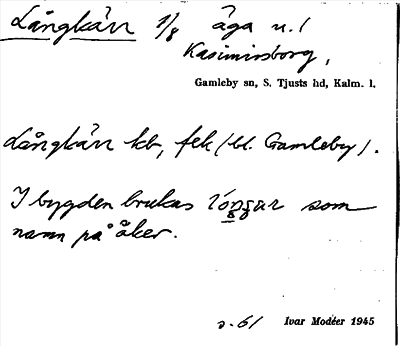 Långkärr 1/8 äga u. /
Kasimirsborg,
Gamleby sn, S. Tjusts hd, Kalm. l.
Långkärr kb, fek (bl. Gamleby).
I bygden brukas som
namn på åker.
s. 61 Ivar Modéer 1945